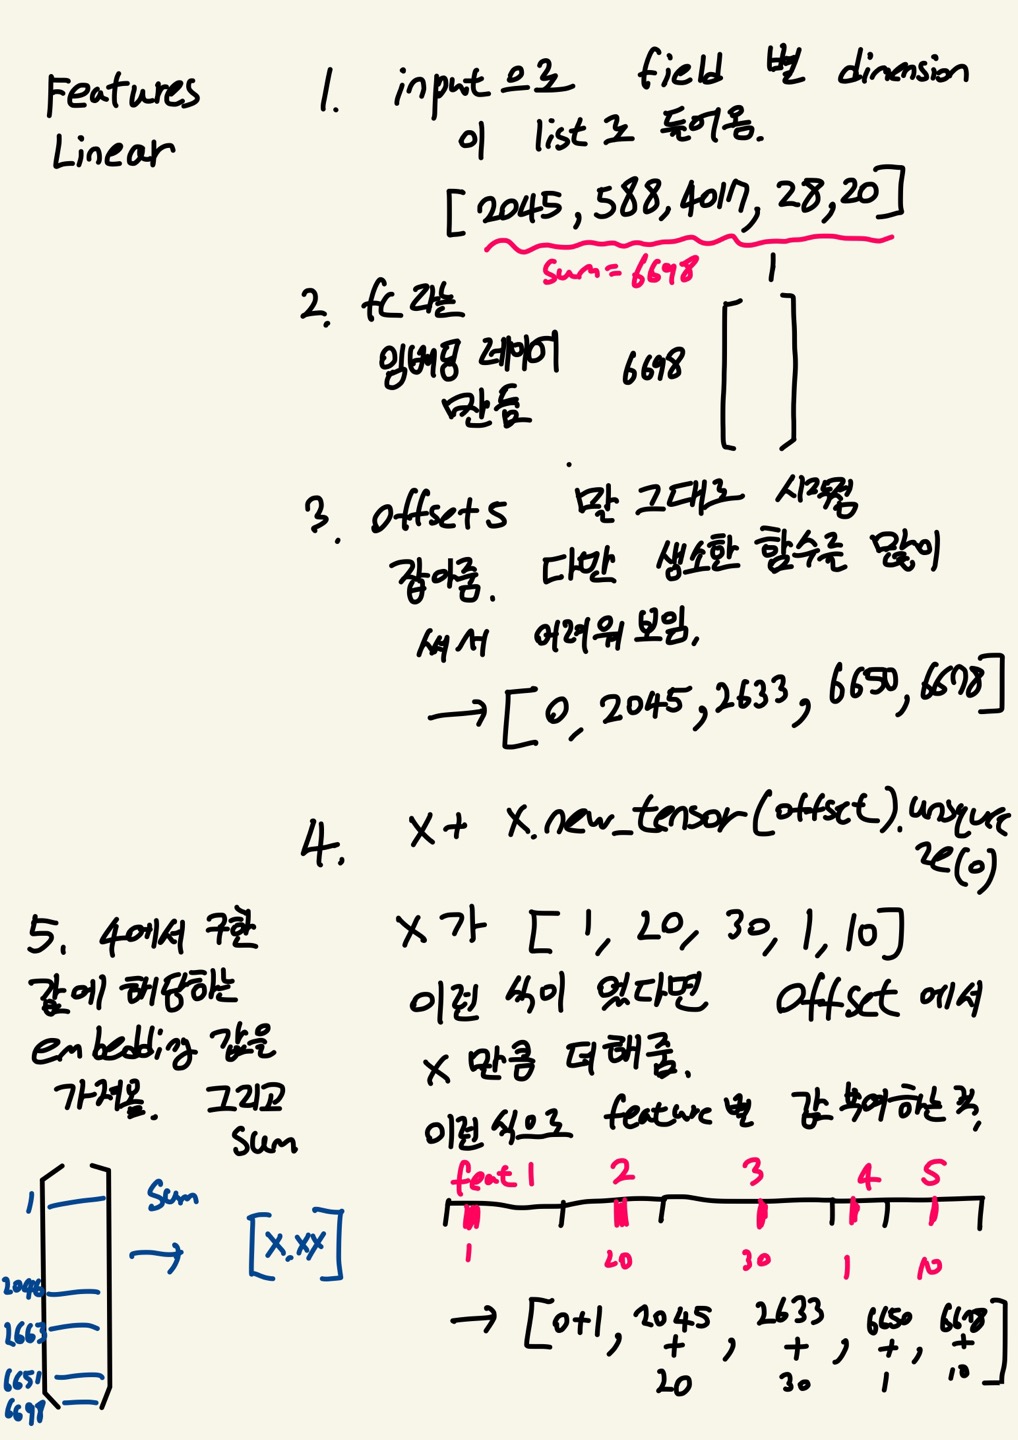 Features
Linear
1. input으로 field 별 dimension
이 list로 들어옴.
[2045, 588, 4017, 28, 20]
sum = 6698
2. fc 라는
임베딩 레이어
만듦
1
6698
3. offsets 말 그대로 시작점
잡아줌. 다만 생소한 함수를 많이
써서 어려워 보임.
→ [0, 2045, 2633, 6650, 6678]
4. x + x.new_tensor(offset).unsquee
ze(0)
x가 [1, 20, 30, 1, 10]
이런 식이 었다면 offset 에서
x 만큼 더 해줌.
이런 식으로 feature 별 값 부여하는 것,
feat 1 2 3 4 5
1 20 30 1 10
→ [0+1, 2045 + 20, 2633 + 30, 6650 + 1, 6678 + 10]
5. 4에서 구한
값에 해당하는
embedding 값을
가져옴. 그리고
sum
1
2046
2663
6651
6698
sum
→
[x.xx]